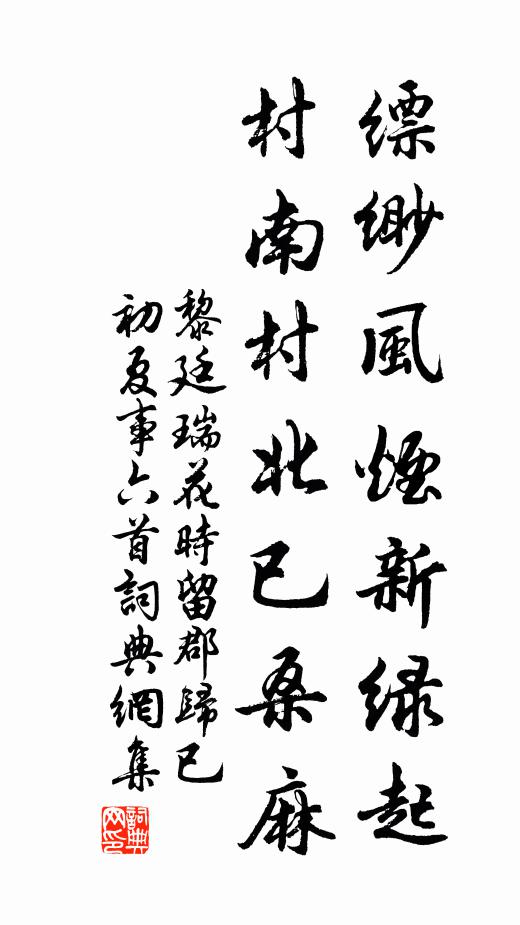 縹緲風煙新緑起
村南村北已桑麻
黎廷瑞花時留郡歸已
初夏事六首詞典網集
詞典
网印